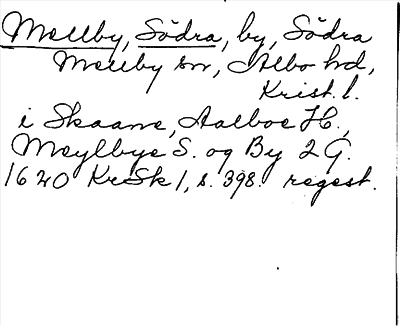 Mellby, Södra, by, Södra
Mellby sn, Albo hd,
Krist. l.
i Skaane, Aalboe H.,
Meylbye S. og By 2 G.
1620 KrSk 1, s. 398. regest.